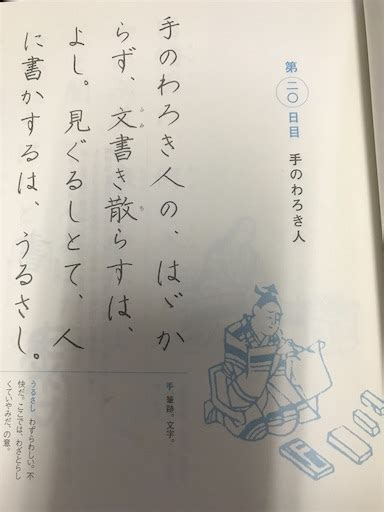 第二〇日目 手のわろき人
手のわろき人の、はゞか
らず、文書き散らすは、
ふみ
ち
よし。見ぐるしとて、人
に書かするは、うるさし。
手 筆跡。文字。
うるさし わずらわしい。不
快だ。ここでは、わざとらし
くていやみだ、の意。